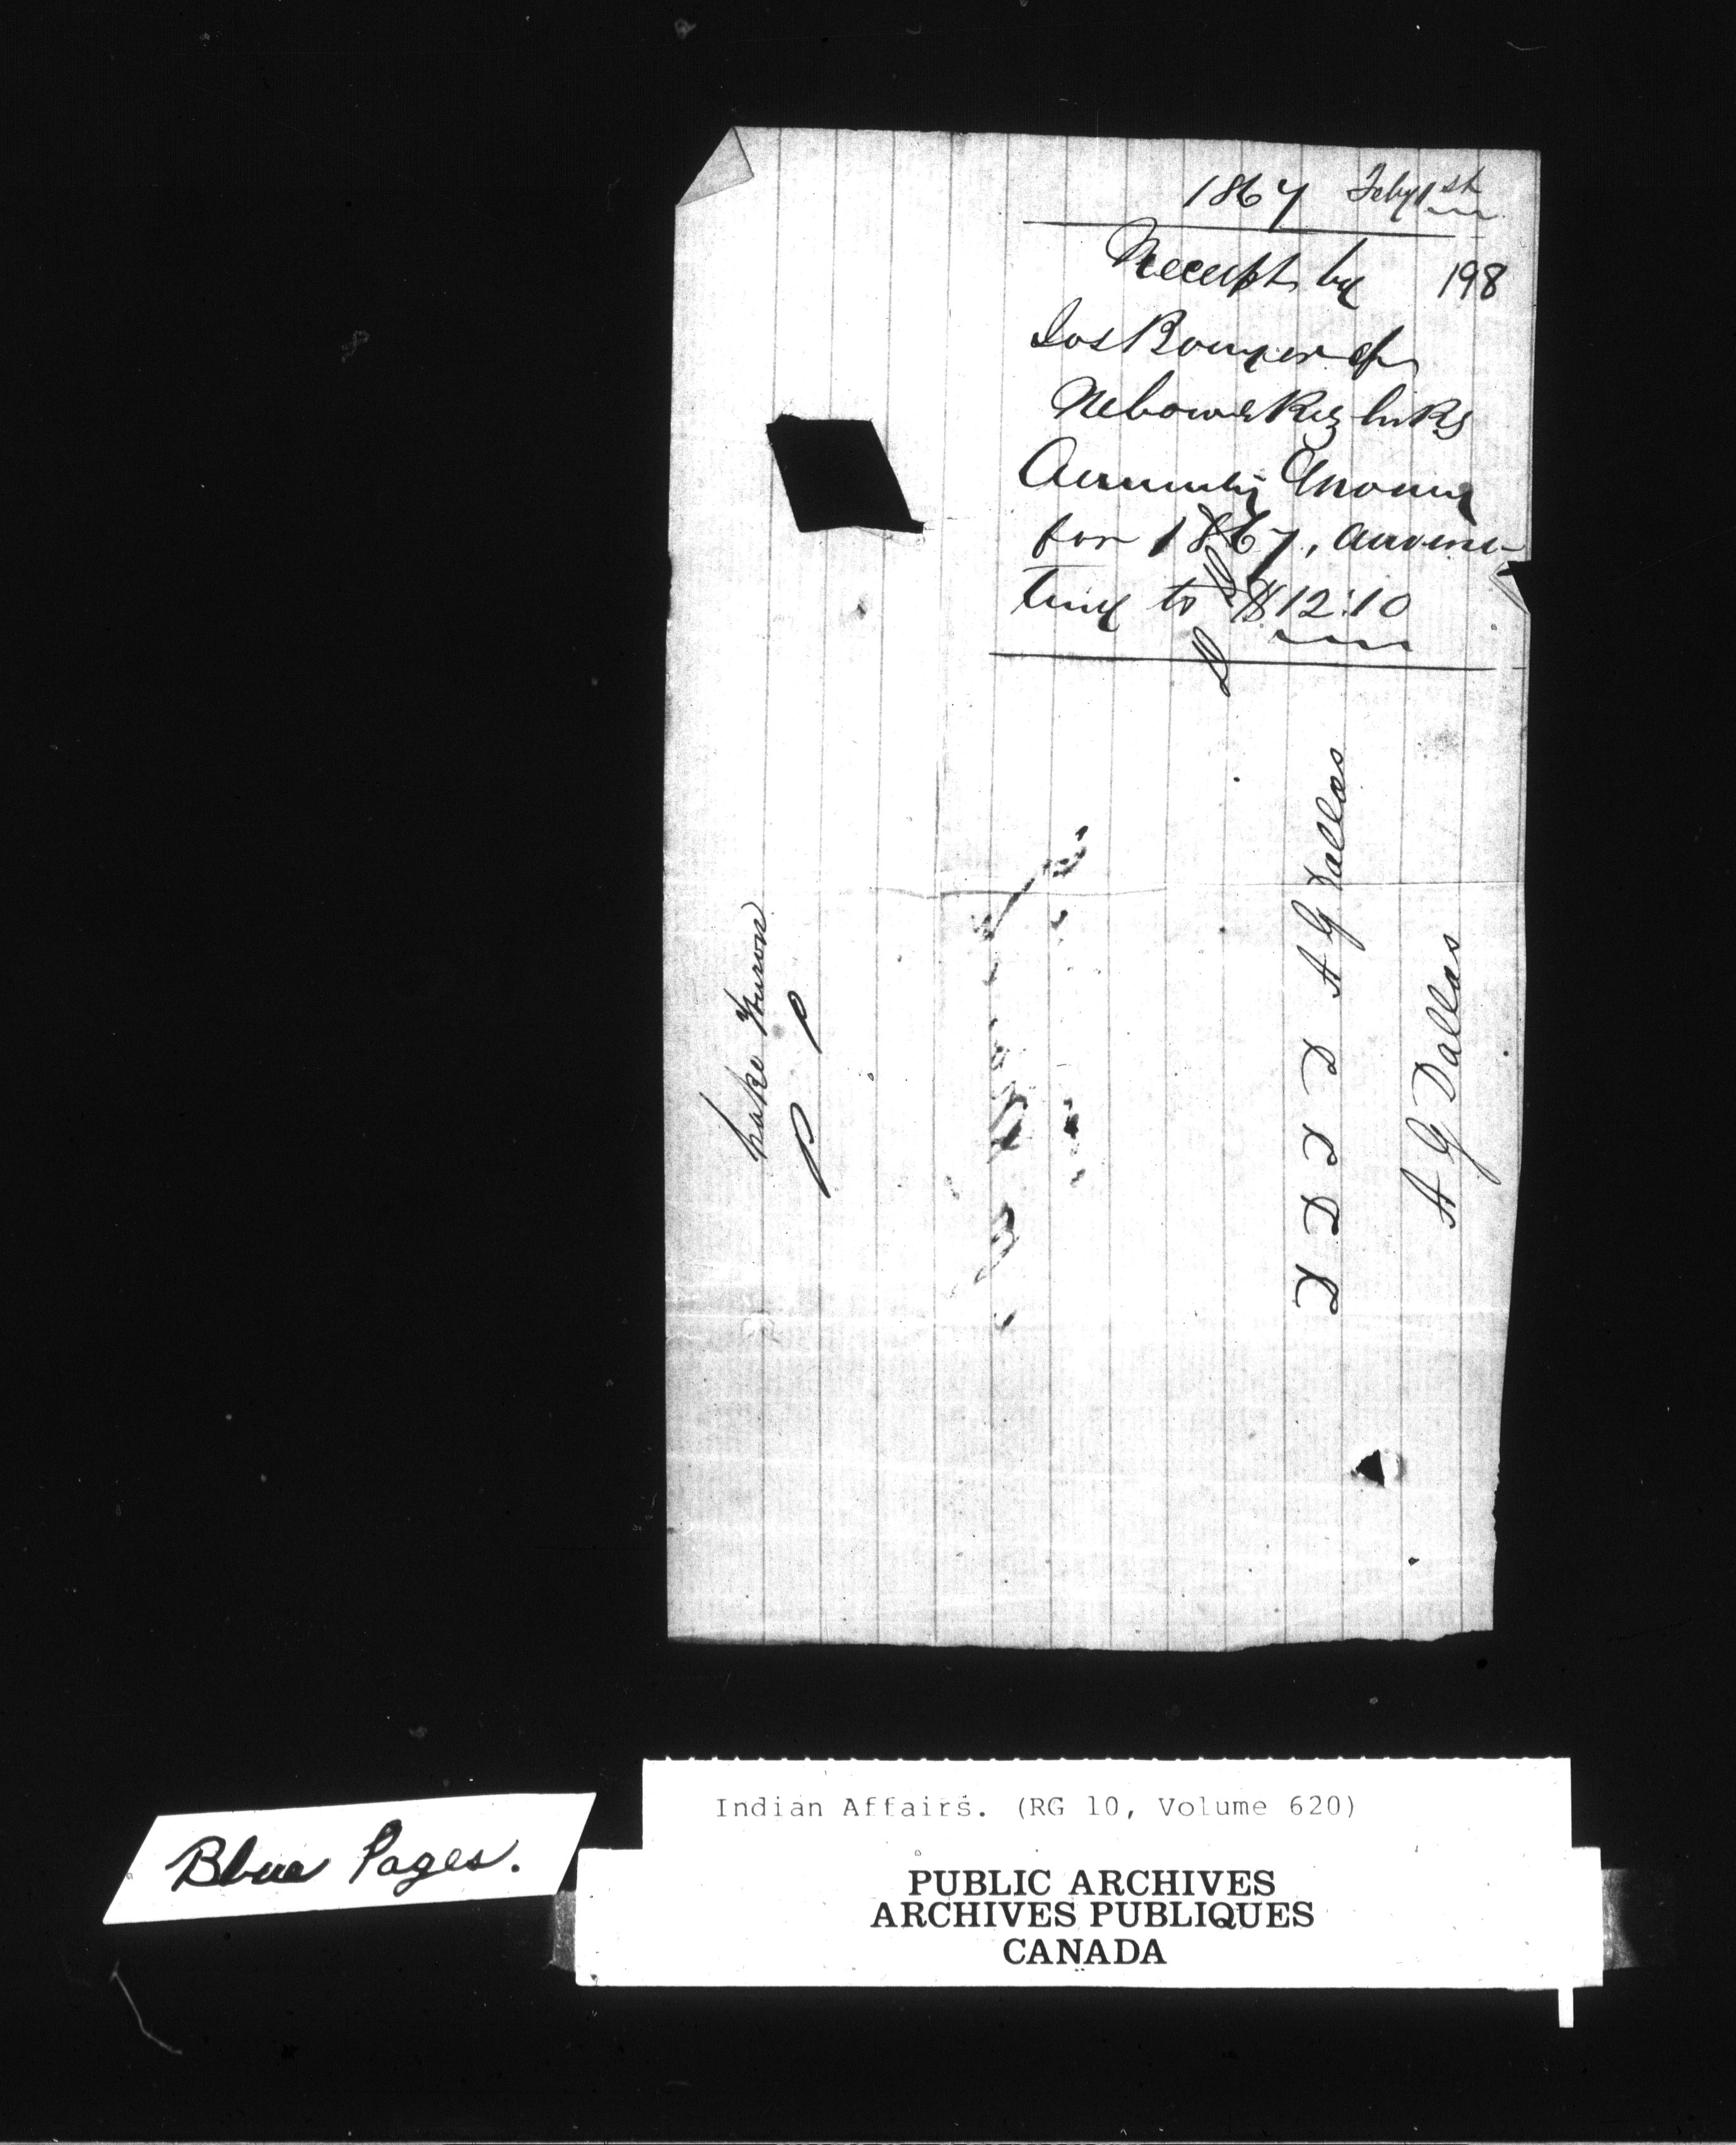 1867 Feby 1st
Receipt by 198
Jos Bouyer of
for 1867, amoun-
ting to $12:10
Lake Huron
D D D D A G Dallas
A G Dallas
Blue Pages.
Indian Affairs. (RG 10, Volume 620)
PUBLIC ARCHIVES
ARCHIVES PUBLIQUES
CANADA